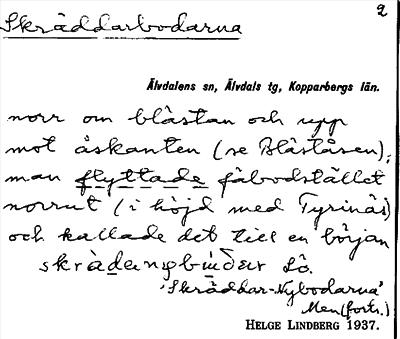 Skräddarbodarna
2
Älvdalens sn, Älvdals tg, Kopparbergs län.
norr om blåstan och upp
mot åskanten (se Blåståsen);
man flyttade fäbodstället
norrut (i höjd med Tyrinäs)
och kallade det till en början
skràdenybùðer lò.
'Skräddar-Nybodarna'
Men (forts.)
HELGE LINDBERG 1937.